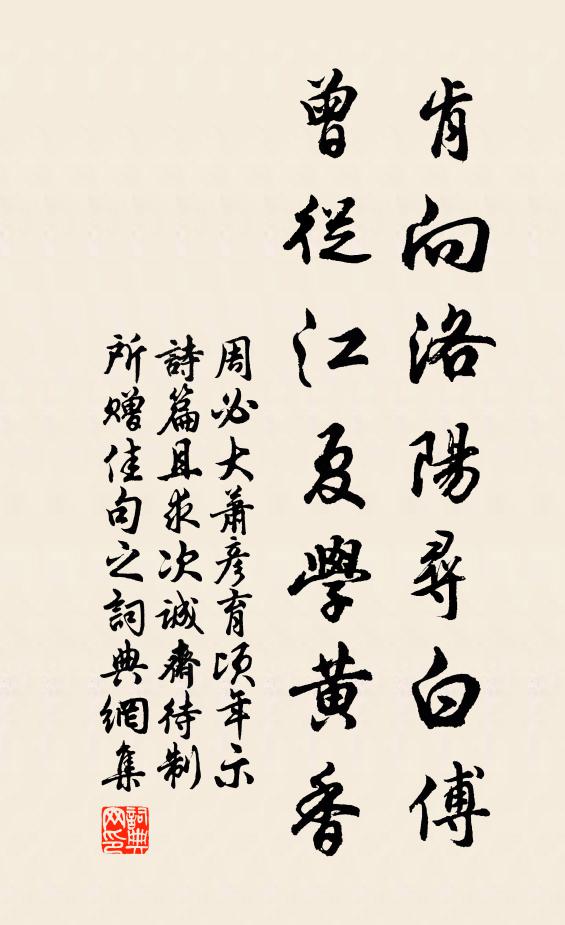 肯向洛陽尋白傅
曾從江夏學黃香
周必大蕭彥育頃年示
詩篇且求次誠齋待制
所贈佳句之詞典網集
詞典網印